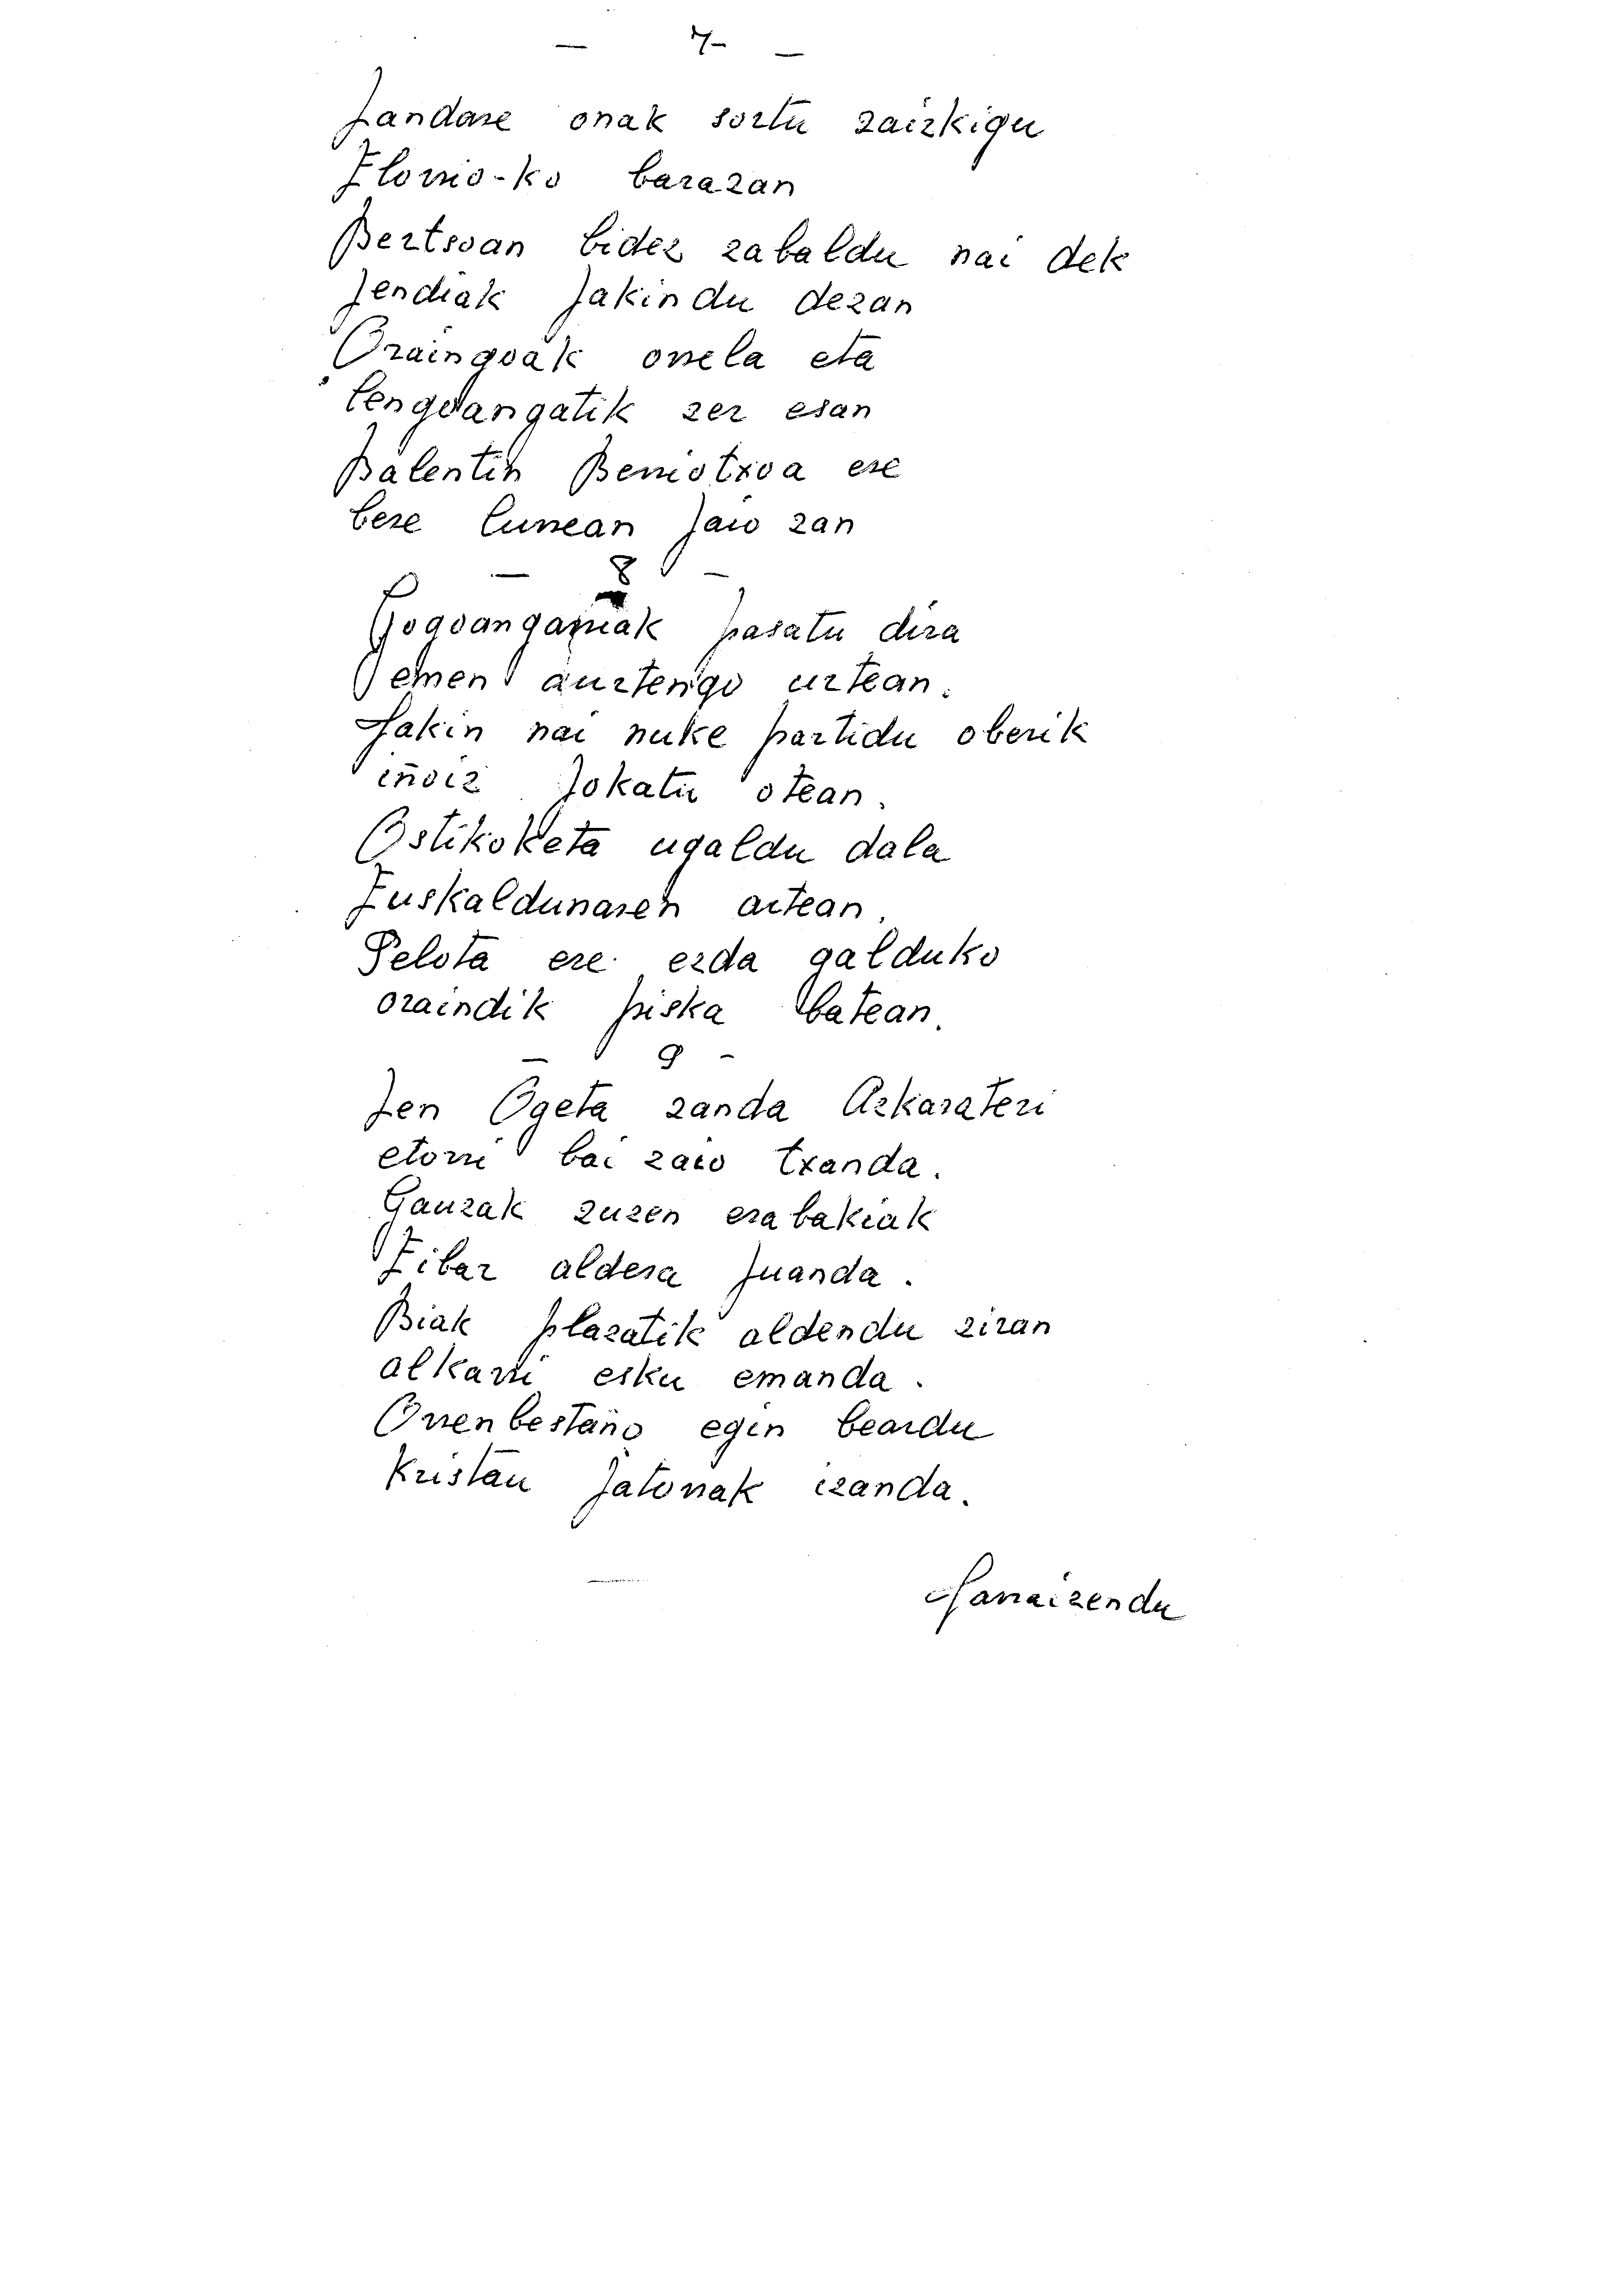 — 7 —
Jandare onak sortu zaizkigu
Elorrio-ko barazan
Bertsoan bidez zabaldu nai dek
Jendiak Jakindu dezan
Oraingoak orrela eta
lengoangatik zer esan
Balentin Berriotxoa ere
bere lurrean Jaio zan
— 8 —
Gogoangarriak pasatu dira
emen aurtengo urtean.
Jakin nai nuke partidu oberik
iñoiz Jokatu otean.
Ostikoketa ugaldu dala
Euskaldunaren artean.
Pelota ere ezda galduko
oraindik piska batean.
— 9 -
Jen Ogeta zanda Azkarateri
etorri bai zaio txanda.
Gauzak zuzen erabakiak
Eibar aldera Juanda.
Biak plazatik aldendu ziran
alkarri esku emanda.
Orrenbestaño egin beardu
Kristau Jatorrak izanda.
Narraizendu